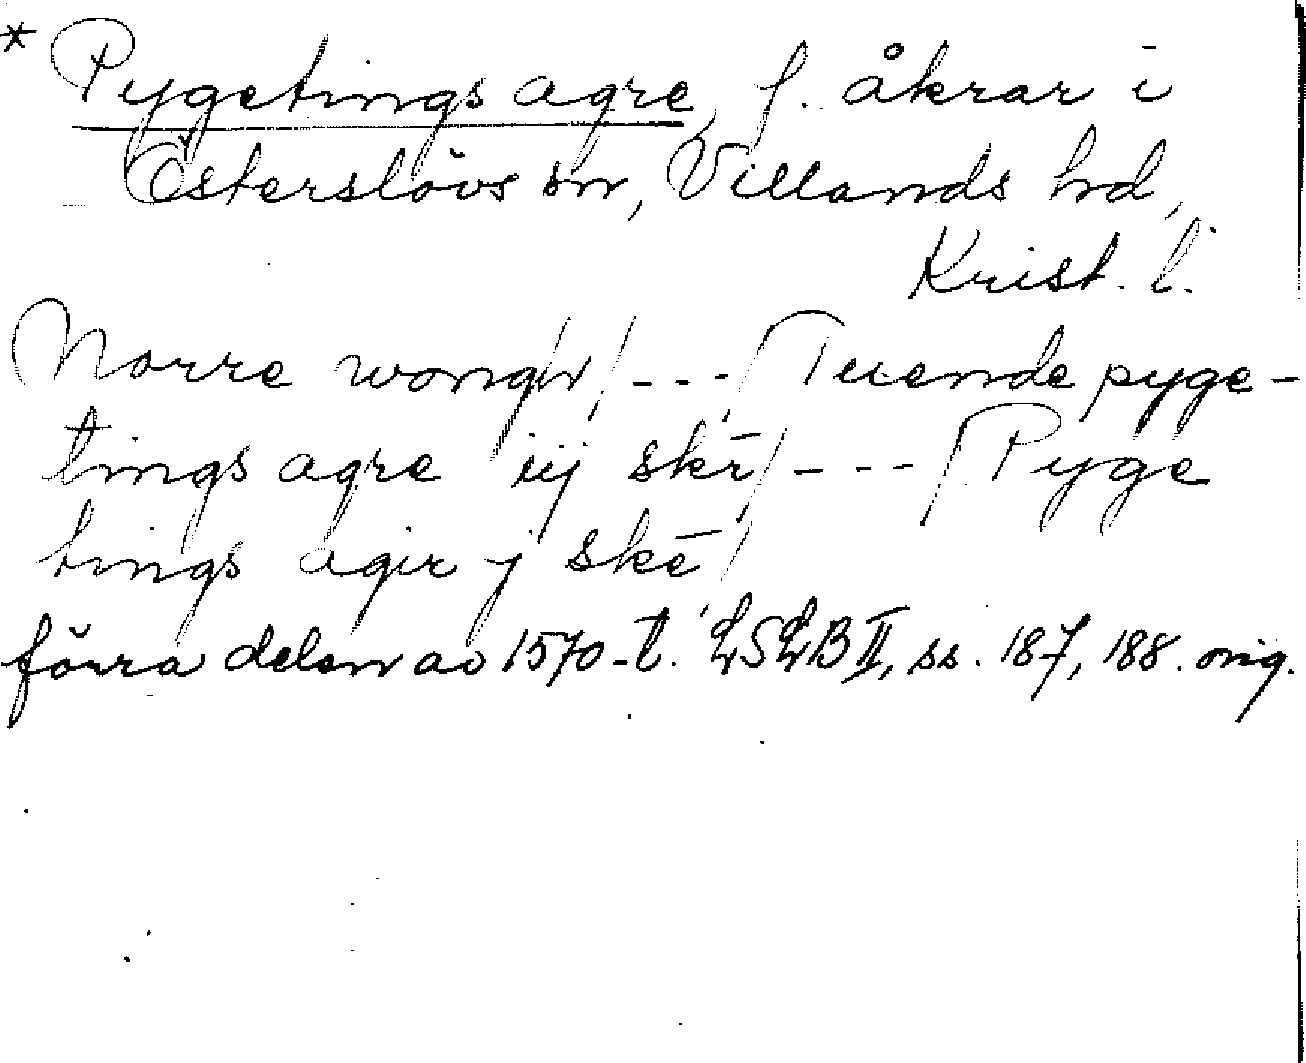 * Pygetings agre, f. åkrar i
Österslövs sn, Villands hd,
Krist. l.
Norre wongh / --- / Tuende pyge-
tings agre iij skē / --- / Pyge
tings agir j skē /
förra delen av 1570-t. LSLB II, ss. 187, 188. orig.